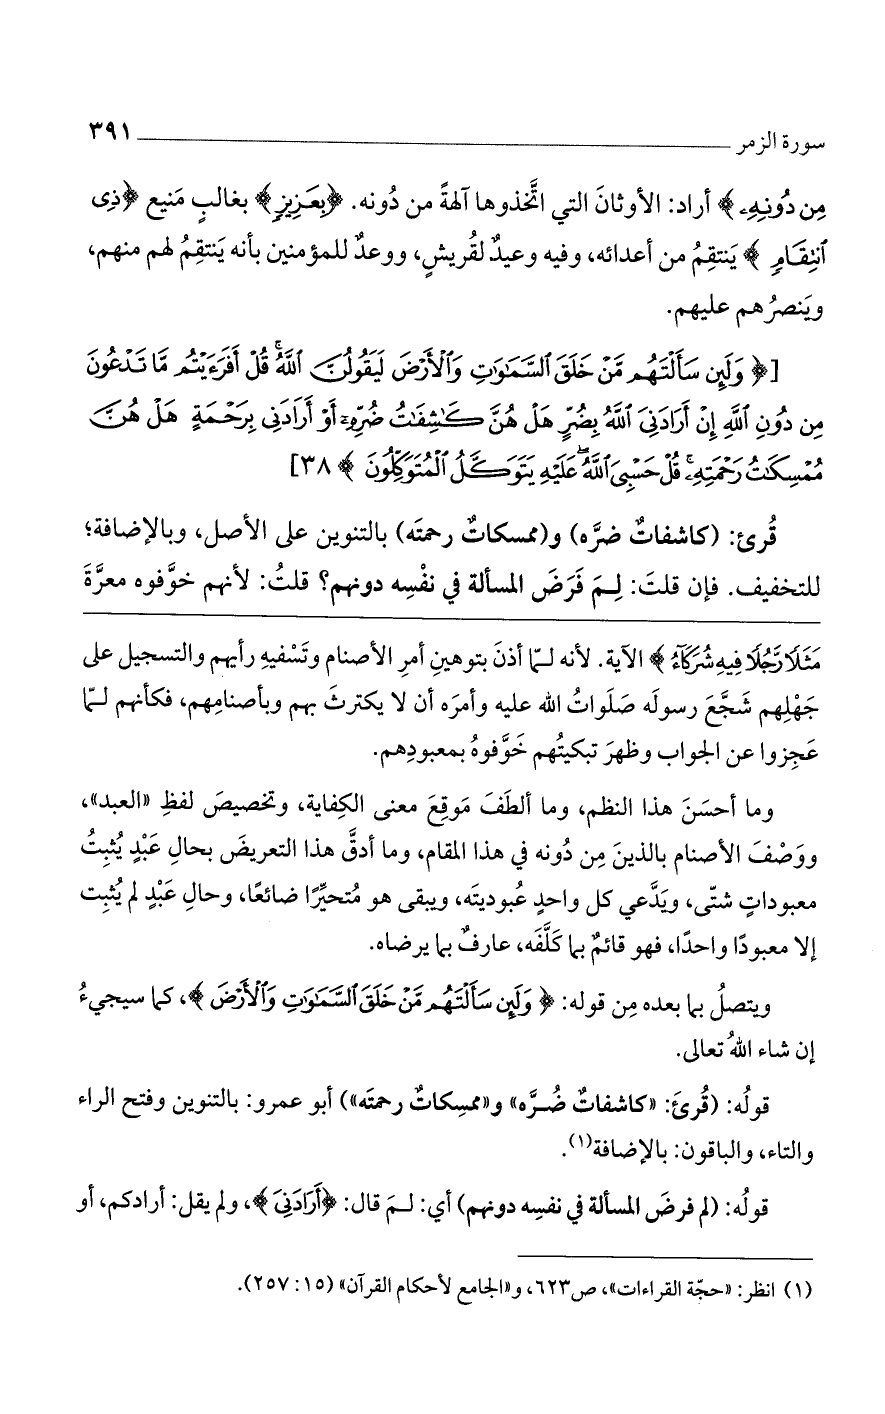 سورة الزمر ٣٩١
مِن دُونِهِۦ﴾ أراد: الأوثانَ التي اتَّخذوها آلهةً من دُونه. ﴿بِعَزِيزٍ﴾ بغالبٍ مَنيع ﴿ذِى
ٱنتِقَامٍ﴾ يَنتقِمُ من أعدائه، وفيه وعيدٌ لقُريشٍ، ووعدٌ للمؤمنين بأنه يَنتقِمُ لهم منهم،
ويَنصرُهم عليهم.
[﴿وَلَئِن سَأَلْتَهُم مَّنْ خَلَقَ ٱلسَّمَٰوَٰتِ وَٱلْأَرْضَ لَيَقُولُنَّ ٱللَّهُ ۚ قُلْ أَفَرَءَيْتُم مَّا تَدْعُونَ
مِن دُونِ ٱللَّهِ إِنْ أَرَادَنِىَ ٱللَّهُ بِضُرٍّ هَلْ هُنَّ كَٰشِفَٰتُ ضُرِّهِۦٓ أَوْ أَرَادَنِى بِرَحْمَةٍ هَلْ هُنَّ
مُمْسِكَٰتُ رَحْمَتِهِۦ ۚ قُلْ حَسْبِىَ ٱللَّهُ ۖ عَلَيْهِ يَتَوَكَّلُ ٱلْمُتَوَكِّلُونَ﴾ ٣٨]
قُرئ: (كاشفاتٌ ضرَّه) و(ممسكاتٌ رحمتَه) بالتنوين على الأصل، وبالإضافة؛
للتخفيف. فإن قلتَ: لِمَ فَرَضَ المسألة في نفْسِه دونهم؟ قلتُ: لأنهم خوَّفوه معرَّةَ
مَثَلًا رَّجُلًا فِيهِ شُرَكَآءُ﴾ الآية. لأنه لـمّا أذنَ بتوهينِ أمرِ الأصنام وتَسْفيهِ رأيهم والتسجيل على
جَهْلِهم شَجَّعَ رسولَه صَلَواتُ الله عليه وأمرَه أن لا يكترثَ بهم وبأصنامِهم، فكأنهم لـمّا
عَجِزوا عن الجواب وظهرَ تبكيتُهم خَوَّفوهُ بمعبودِهم.
وما أحسَنَ هذا النظم، وما ألطَفَ مَوقِعَ معنى الكِفاية، وتخصيصَ لفظِ «العبد»،
ووَصْفَ الأصنام بالذينَ مِن دُونه في هذا المقام، وما أدقَّ هذا التعريضَ بحالِ عَبْدٍ يُثبِتُ
معبوداتٍ شتّى، ويَدَّعي كل واحدٍ عُبوديتَه، ويبقى هو مُتحيِّرًا ضائعًا، وحالِ عَبْدٍ لم يُثبِت
إلا معبودًا واحدًا، فهو قائمٌ بما كَلَّفَه، عارفٌ بما يرضاه.
ويتصلُ بما بعده مِن قوله: ﴿وَلَئِن سَأَلْتَهُم مَّنْ خَلَقَ ٱلسَّمَٰوَٰتِ وَٱلْأَرْضَ﴾، كما سيجيءُ
إن شاء اللهُ تعالى.
قولُه: (قُرئَ: «كاشفاتٌ ضُـرَّه» و«ممسِكاتٌ رحمتَه») أبو عمرو: بالتنوين وفتح الراء
والتاء، والباقون: بالإضافة(١).
قولُه: (لم فرضَ المسألة في نفسِه دونهم) أي: لـمَ قال: ﴿أَرَادَنِىَ﴾، ولم يقل: أرادكم، أو
(١) انظر: «حجّة القراءات»، ص٦٢٣، و«الجامع لأحكام القرآن» (١٥: ٢٥٧).